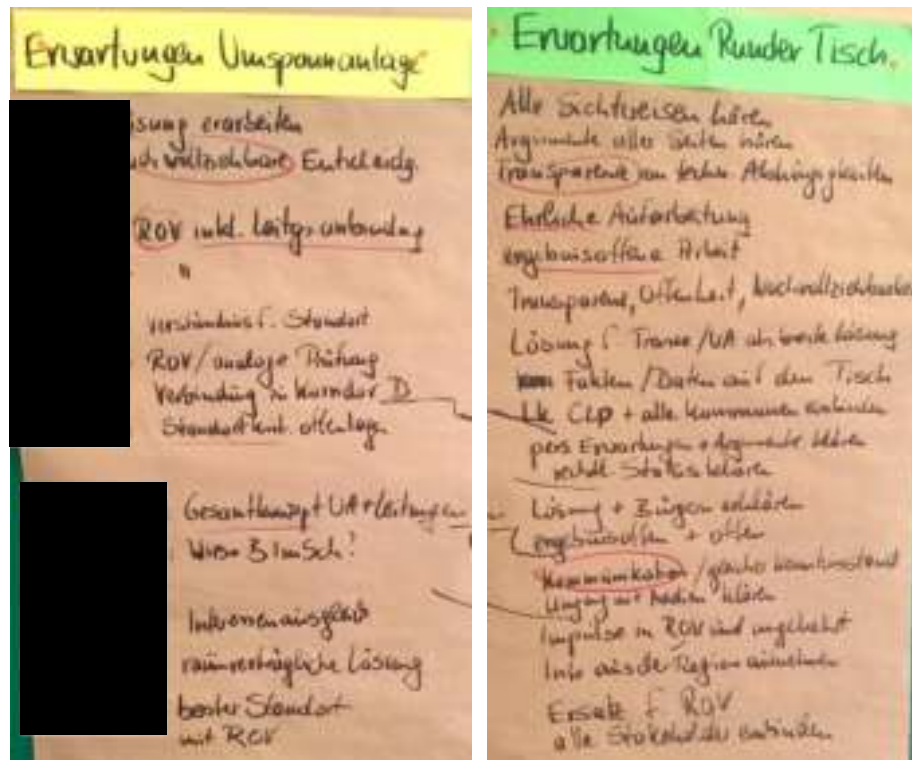 Erwartungen Umspannanlage
ösung erarbeiten
nachvollziehbare Entscheidg.
ROV inkl. Leitgs.anbindung
"
Verständnis f. Standort
ROV/analoge Prüfung
Verbindung zu Korridor D
Standort offenlegen
Gesamtkonzept UA + Leitungen
Wieso BImSch?
Interessenausgleich
raumverträgliche Lösung
bester Standort
mit ROV
Erwartungen Runder Tisch.
Alle Sichtweisen hören
Argumente aller Seiten hören
Transparenz von techn. Abhängigkeiten
Ehrliche Aufarbeitung
ergebnisoffene Arbeit
Transparenz, Offenheit, Nachvollziehbarkeit
Lösung f. Trasse/UA als beste Lösung
Fakten/Daten auf den Tisch
LK CLP + alle Kommunen einbinden
pers. Erwartungen + Argumente klären
rechtl. Status klären
Lösung + Bürgern erklären
ergebnisoffen + offen
Kommunikation / gleicher Kenntnisstand
Umgang mit Medien klären
Impulse in ROV und umgekehrt
Info aus der Region aufnehmen
Ersatz f. ROV
alle Stakeholder einbinden